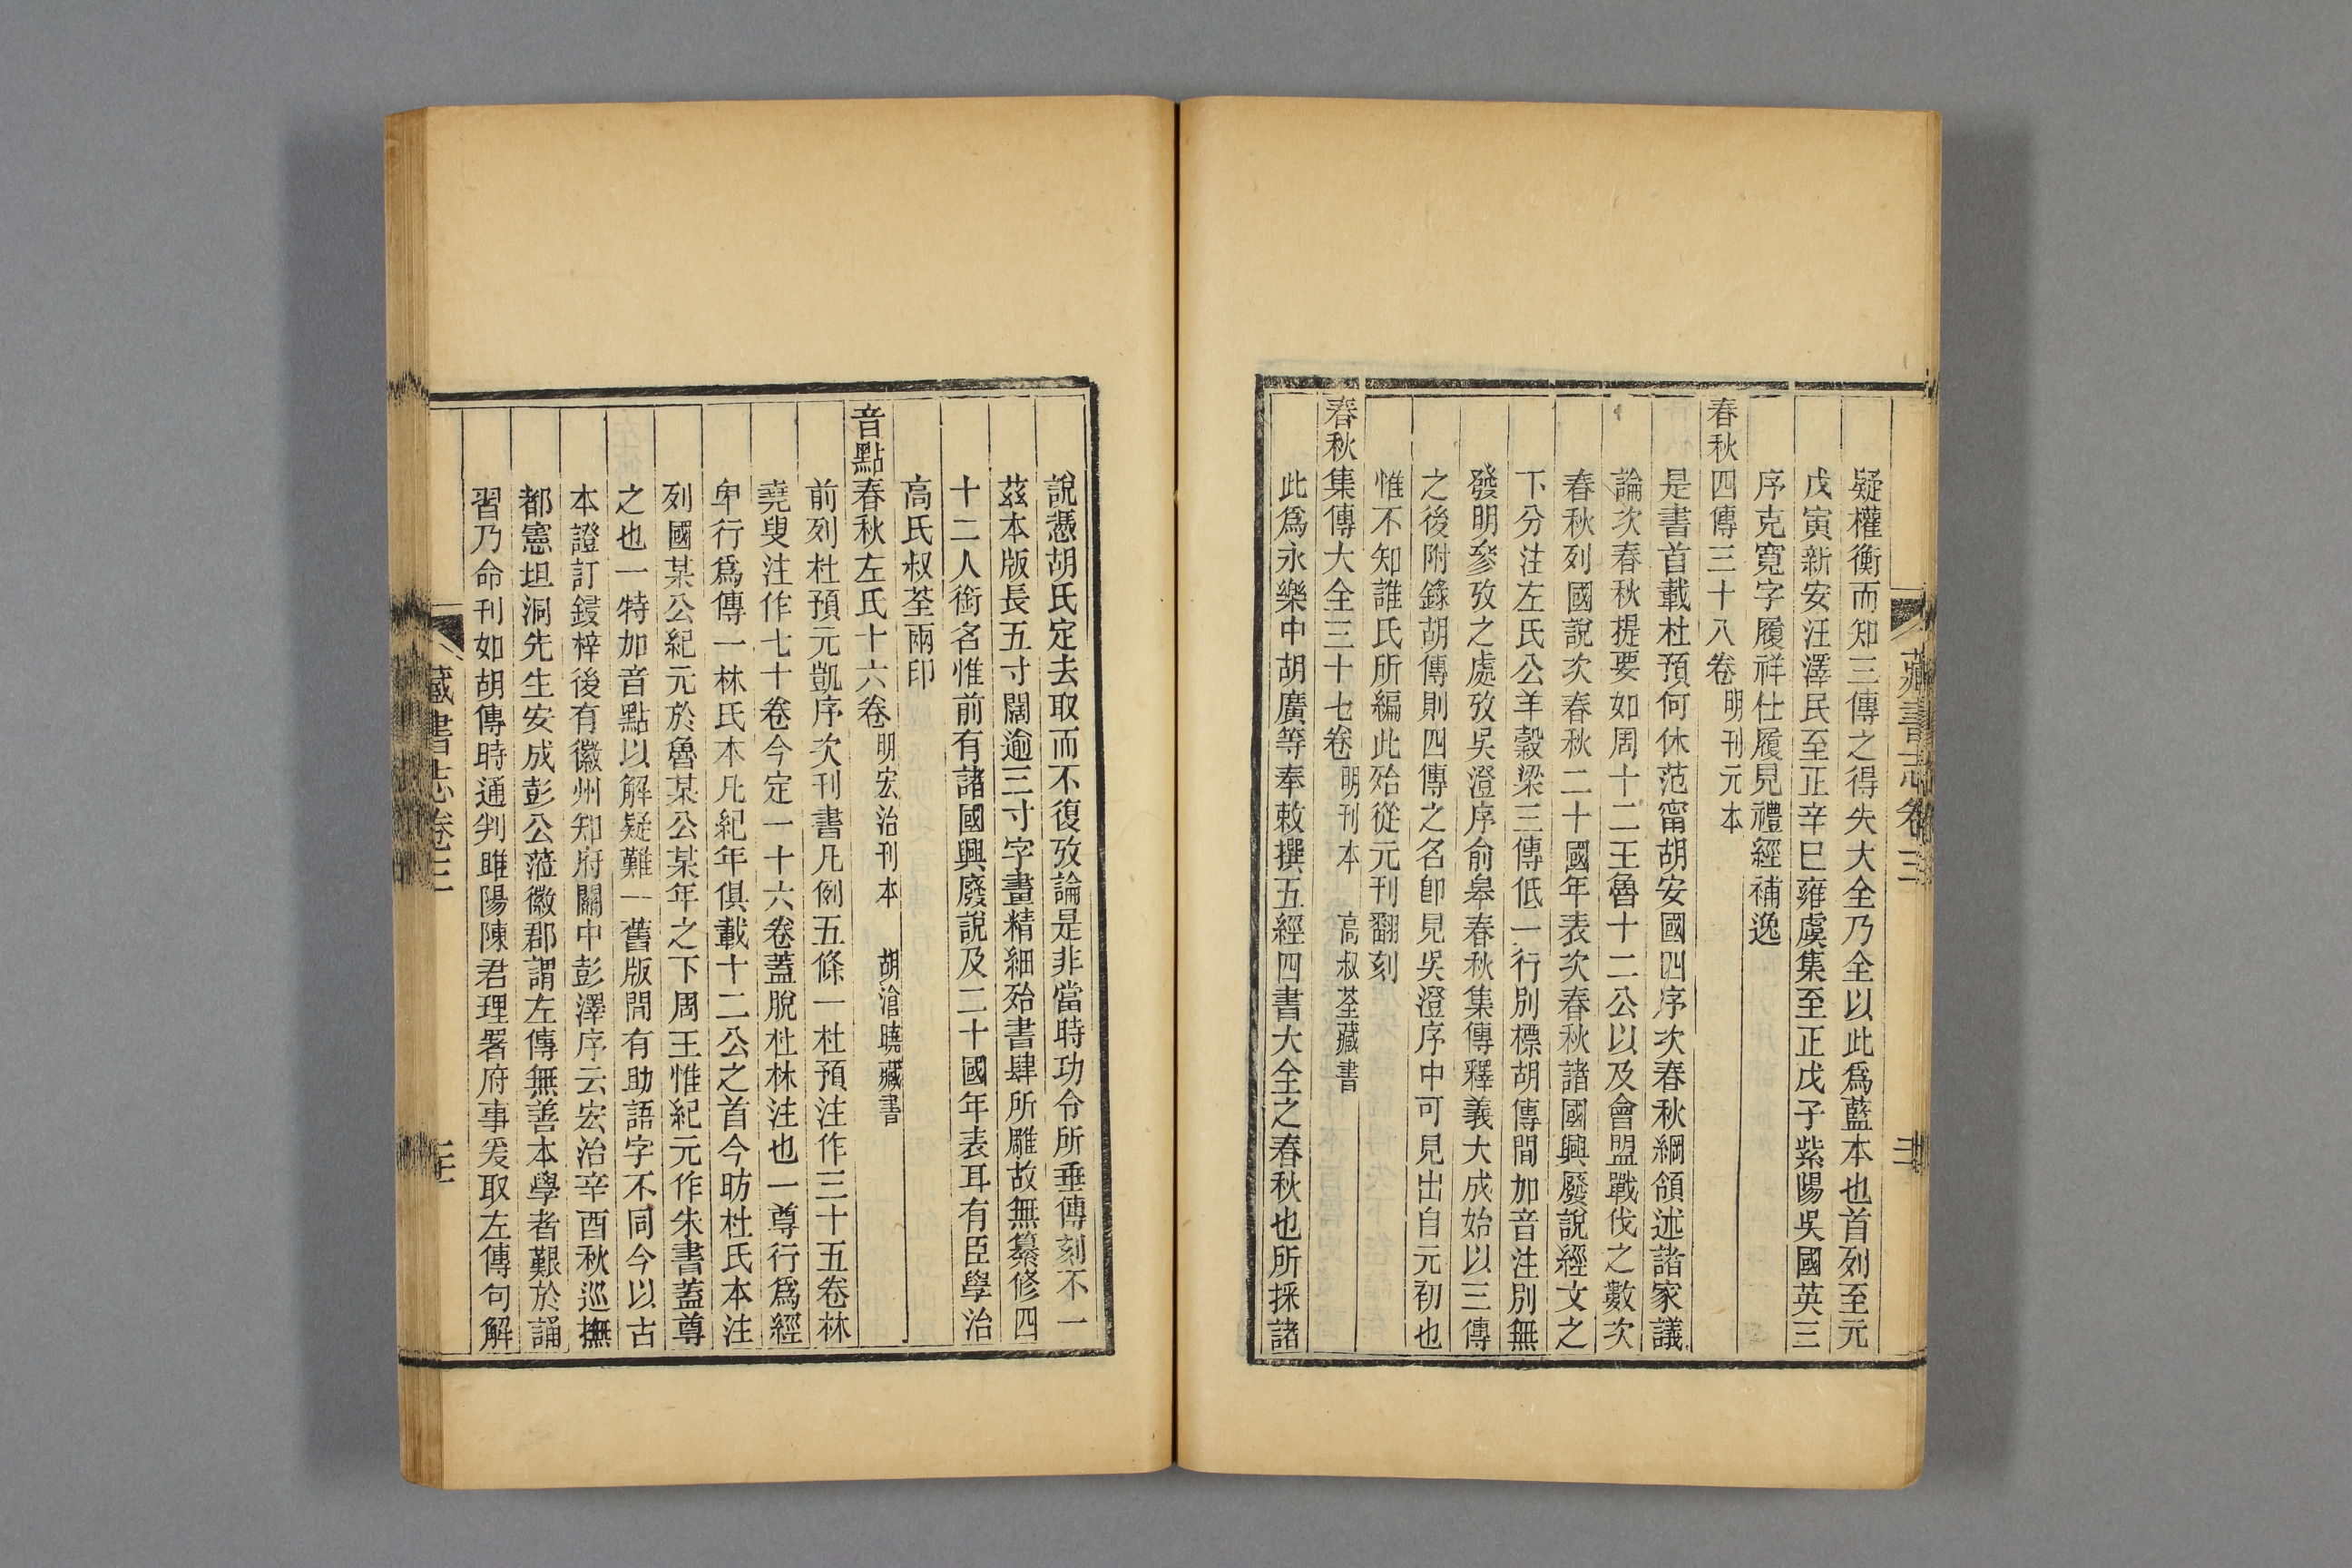 藏書志卷三
疑權衡而知三傳之得失大全乃全以此爲藍本也首列至元
戊寅新安汪澤民至正辛巳雍虞集至正戊子紫陽吳國英三
序克寬字履祥仕履見禮經補逸
春秋四傳三十八卷 明刊元本
是書首載杜預何休范甯胡安國四序次春秋綱領述諸家議
論次春秋提要如周十二王魯十二公以及會盟戰伐之數次
春秋列國說次春秋二十國年表次春秋諸國興廢說經文之
下分注左氏公羊穀梁三傳低一行別標胡傳間加音注別無
發明參攷之處攷吳澄序俞皋春秋集傳釋義大成始以三傳
之後附錄胡傳則四傳之名卽見吳澄序中可見出自元初也
惟不知誰氏所編此殆從元刊翻刻
春秋集傳大全三十七卷 明刊本 高叔荃藏書
此爲永樂中胡廣等奉敕撰五經四書大全之春秋也所採諸
說憑胡氏定去取而不復攷論是非當時功令所垂傳刻不一
茲本版長五寸闊逾三寸字畫精細殆書肆所雕故無纂修四
十二人銜名惟前有諸國興廢說及二十國年表耳有臣學治
高氏叔荃兩印
音點春秋左氏十六卷 明宏治刊本 胡滄曉藏書
前列杜預元凱序次刊書凡例五條一杜預注作三十五卷林
堯叟注作七十卷今定一十六卷蓋脫杜林注也一尊行爲經
卑行爲傳一林氏本凡紀年俱載十二公之首今昉杜氏本注
列國某公紀元於魯某公某年之下周王惟紀元作朱書蓋尊
之也一特加音點以解疑難一舊版間有助語字不同今以古
本證訂鋟梓後有徽州知府關中彭澤序云宏治辛酉秋巡撫
都憲坦洞先生安成彭公蒞徽郡謂左傳無善本學者艱於誦
習乃命刊如胡傳時通判雎陽陳君理署府事爰取左傳句解
藏書志卷三